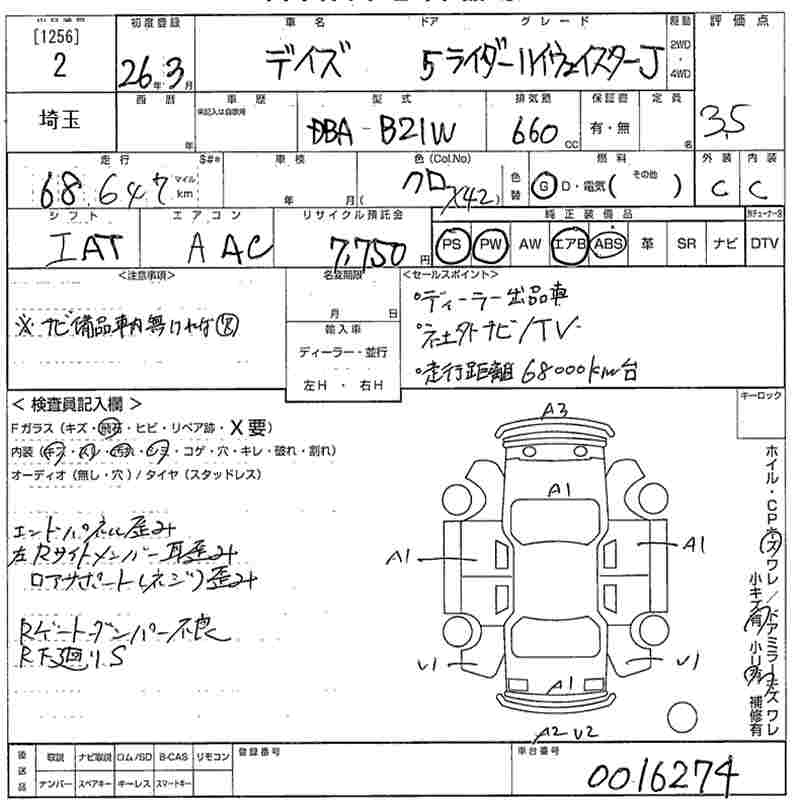 [1256]
2
初度登録
26年3月
車名
デイズ
ドア
5
グレード
ライダーハイウェイスターJ
駆動
2WD
・
4WD
評価点
3.5
埼玉
西暦
年
車歴
未記入は自家用
型式
DBA-B21W
排気量
660
CC
保証書
有・無
定員
名
走行
68,647
マイル
km
S#*
車検
年 月(
色(Col.No)
クロ
X42)
色替
燃料
G D・電気( その他 )
外装
C
内装
C
シフト
IAT
エアコン
AAC
リサイクル預託金
7,750円
純正装備品
PS PW AW エアB ABS 革 SR ナビ
DTV
<注意事項>
※ナビ備品車内無ければ
名変期限
月 日
輸入車
ディーラー・並行
左H・右H
<セールスポイント>
・ディーラー出品車
・社外ナビ/TV
・走行距離68000km台
<検査員記入欄>
Fガラス(キズ・飛石・ヒビ・リペア跡・X要)
内装(キズ・スレ・汚れ・シミ・コゲ・穴・キレ・破れ・割れ)
オーディオ(無し・穴)/タイヤ(スタッドレス)
エンドパネル歪み
左Rサイドメンバー耳歪み
ロアサポート(ネジ)歪み
Rゲート・バンパー不良
R下廻りS
キーロック
ホイル・CPキズワレ/ドアミラーキズワレ
小キズ有 小凹有 補修有
A3
A1
A1
A1
V1
V1
A1
A2 V2
後送品
取説 ナビ取説 ロム/SD B-CAS リモコン
ナンバー スペアキー キーレス スマートキー
登録番号
車台番号
0016274